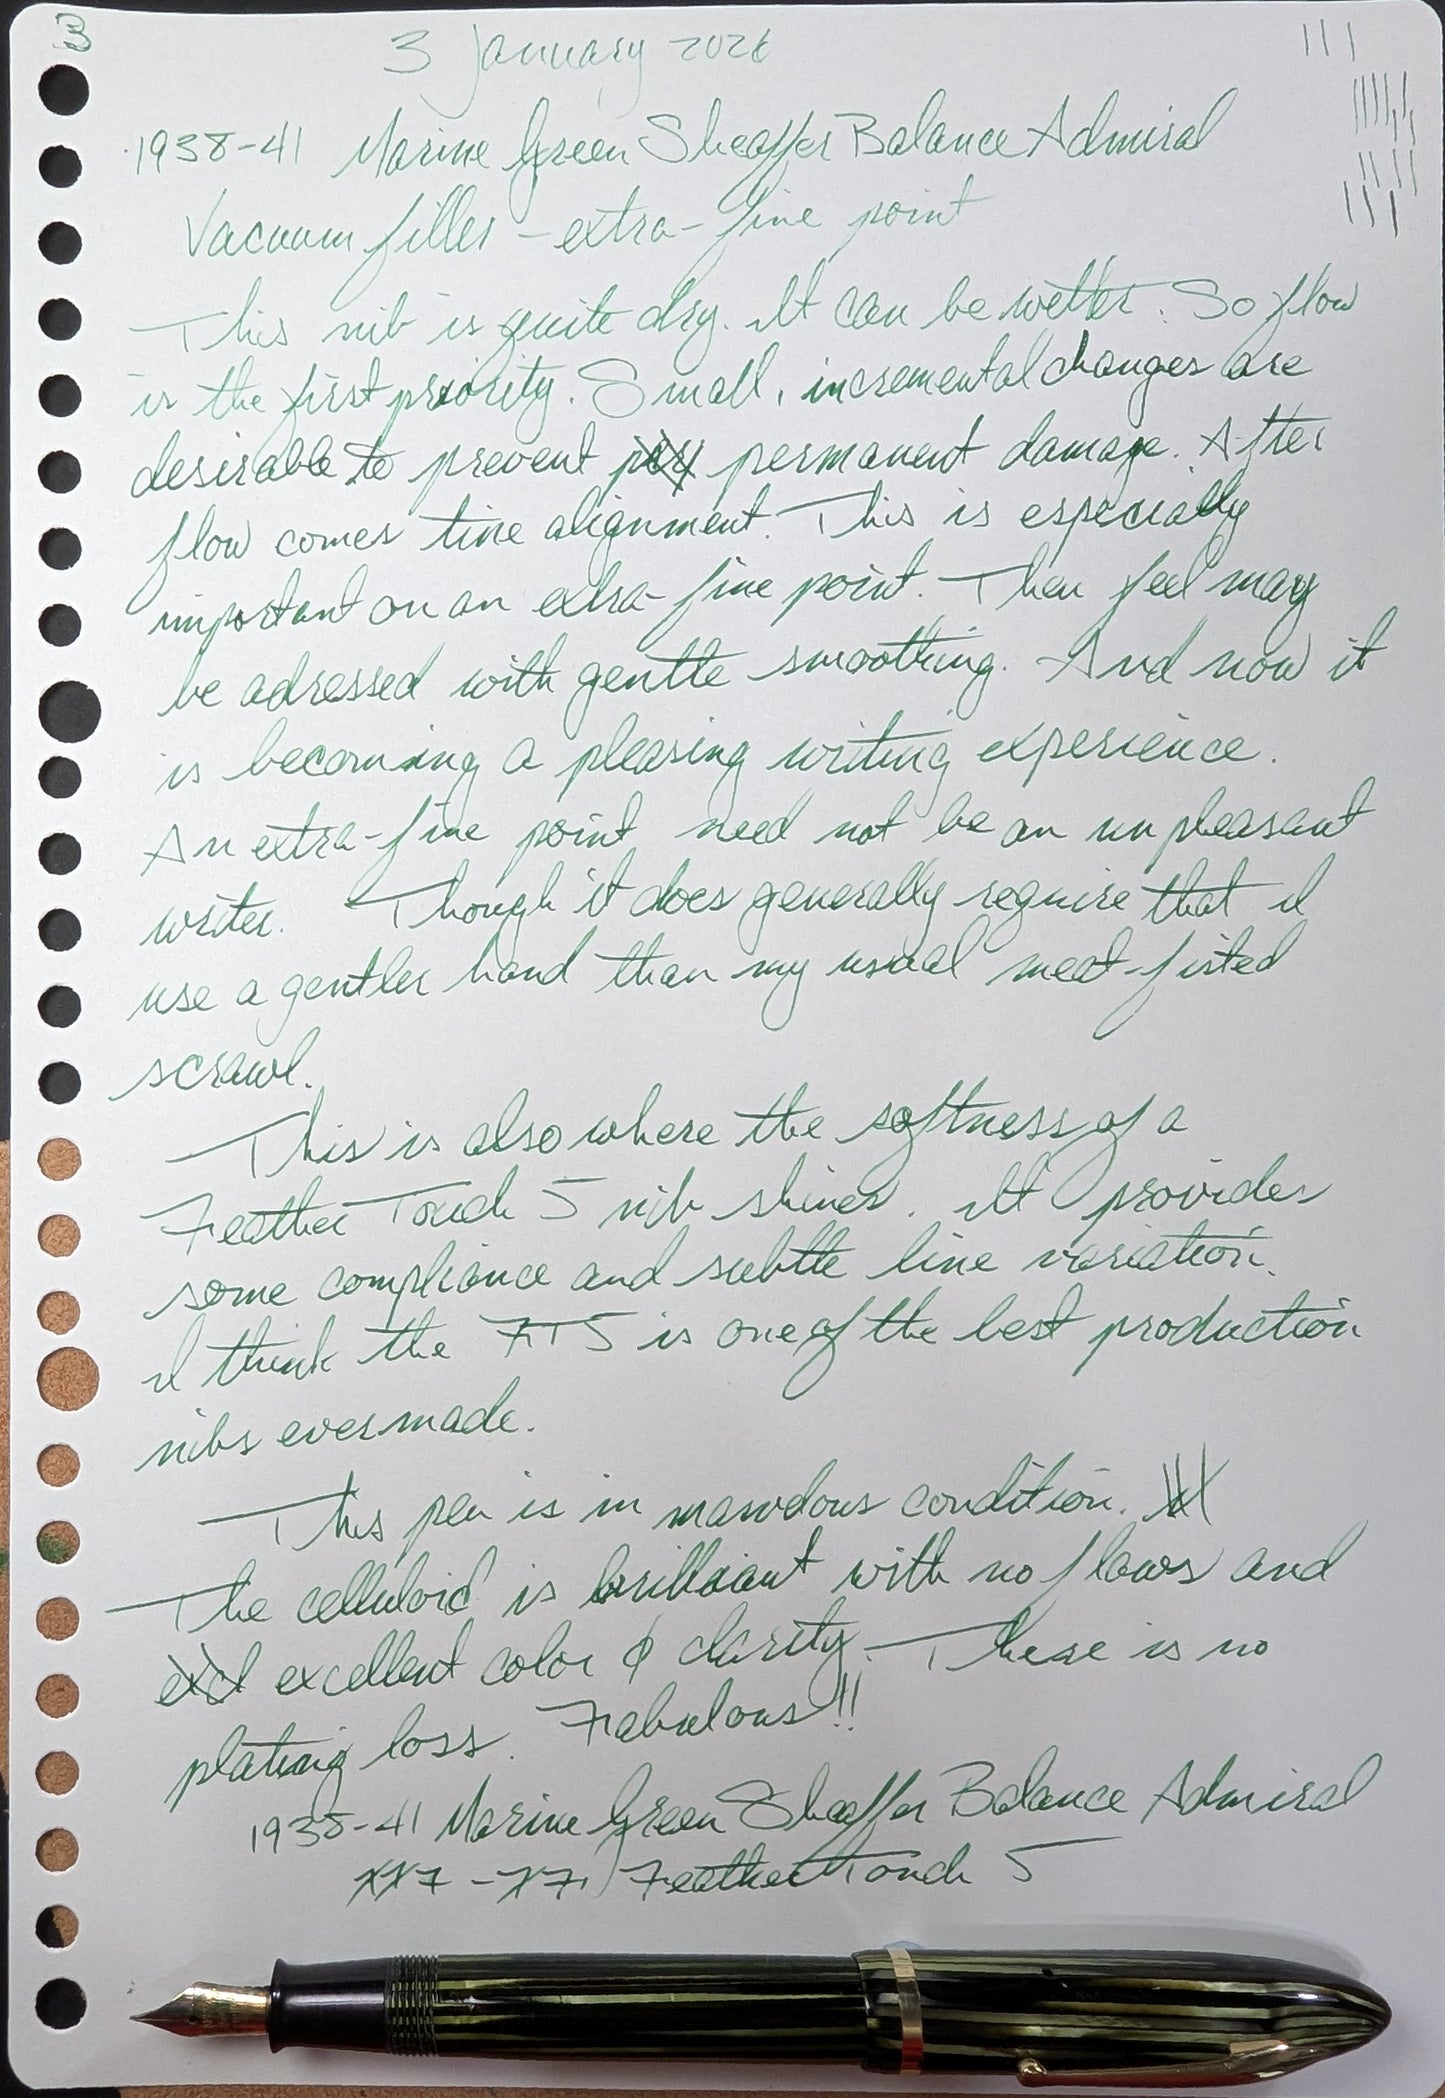 3 January 2026
1938-41 Marine Green Sheaffer Balance Admiral
Vacuum filler - extra-fine point
This nib is quite dry. It can be wetter. So flow
is the first priority. Small, incremental changes are
desirable to prevent permanent damage. After
flow comes tine alignment. This is especially
important on an extra-fine point. Then feel may
be adressed with gentle smoothing. And now it
is becoming a pleasing writing experience.
An extra-fine point need not be an unpleasant
writer. Though it does generally require that I
use a gentler hand than my usual meat-fisted
scrawl.
This is also where the softness of a
Feather Touch 5 nib shines. It provides
some compliance and subtle line variation.
I think the FT5 is one of the best production
nibs ever made.
This pen is in marvelous condition.
The celluloid is brilliant with no flaws and
excellent color & clarity. There is no
plating loss. Fabulous!!
1938-41 Marine Green Sheaffer Balance Admiral
XXF - XF, Feather Touch 5